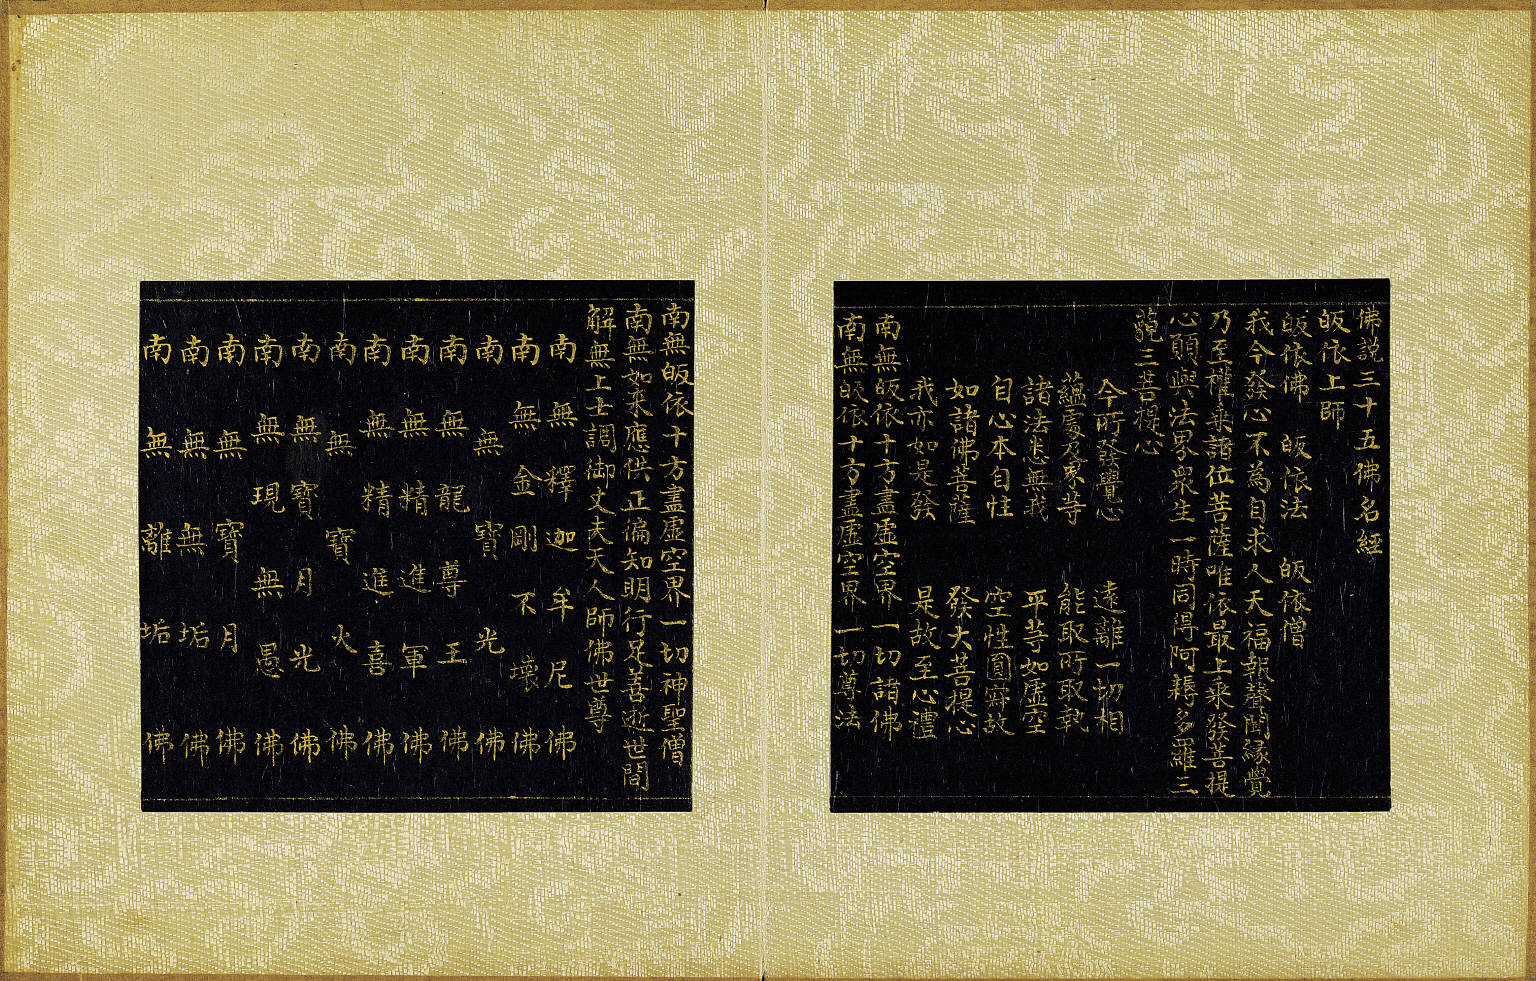 佛說三十五佛名經
皈依上師
皈依佛 皈依法 皈依僧
我今發心不為自求人天福報聲聞緣覺
乃至權乘諸位菩薩唯依最上乘發菩提
心願與法界衆生一時同得阿耨多羅三
藐三菩提心
今所發覺心 遠離一切相
蘊處及象等 能取所取執
諸法悉無我 平等如虛空
自心本自性 空性圓寂故
如諸佛菩薩 發大菩提心
我亦如是發 是故至心禮
南無皈依十方盡虛空界一切諸佛
南無皈依十方盡虛空界一切尊法
南無皈依十方盡虛空界一切神聖僧
南無如來應供正徧知明行足善逝世間
解無上士調御丈夫天人師佛世尊
南無釋迦牟尼佛
南無金剛不壞佛
南無寶光佛
南無龍尊王佛
南無精進軍佛
南無精進喜佛
南無寶火佛
南無寶月光佛
南無現無愚佛
南無寶月佛
南無無垢佛
南無離垢佛